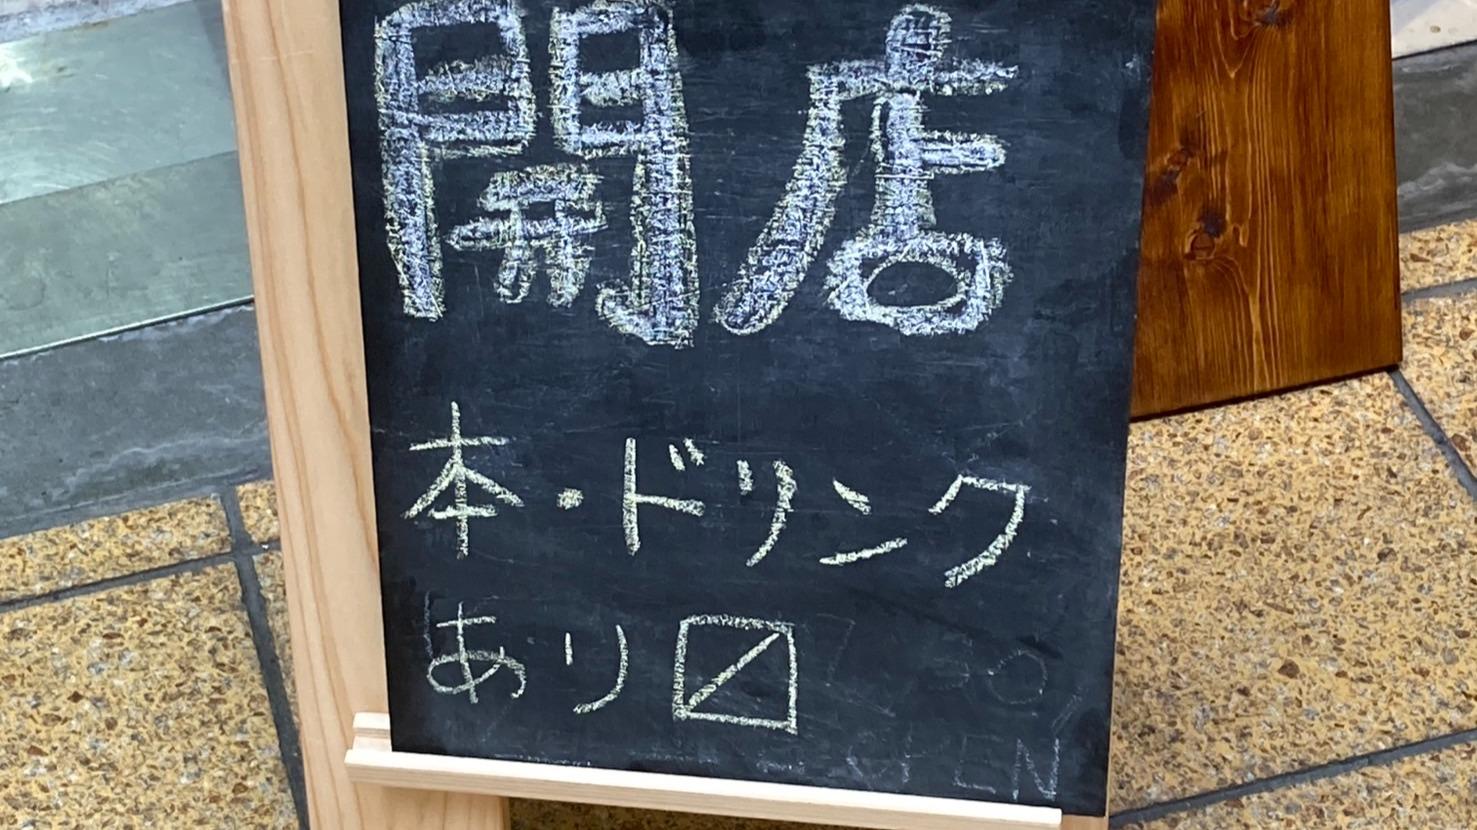 開店
本・ドリンク
あり〼